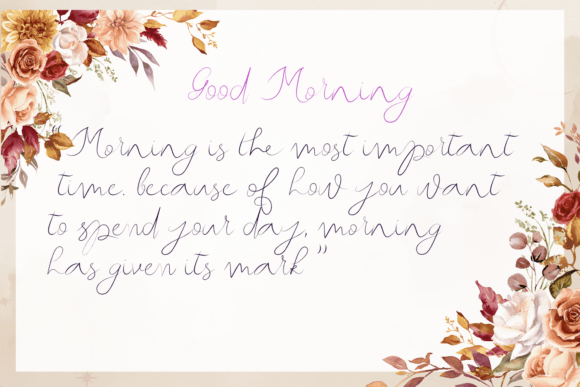 Good Morning
"Morning is the most important
time. because of how you want
to spend your day, morning
has given its mark"